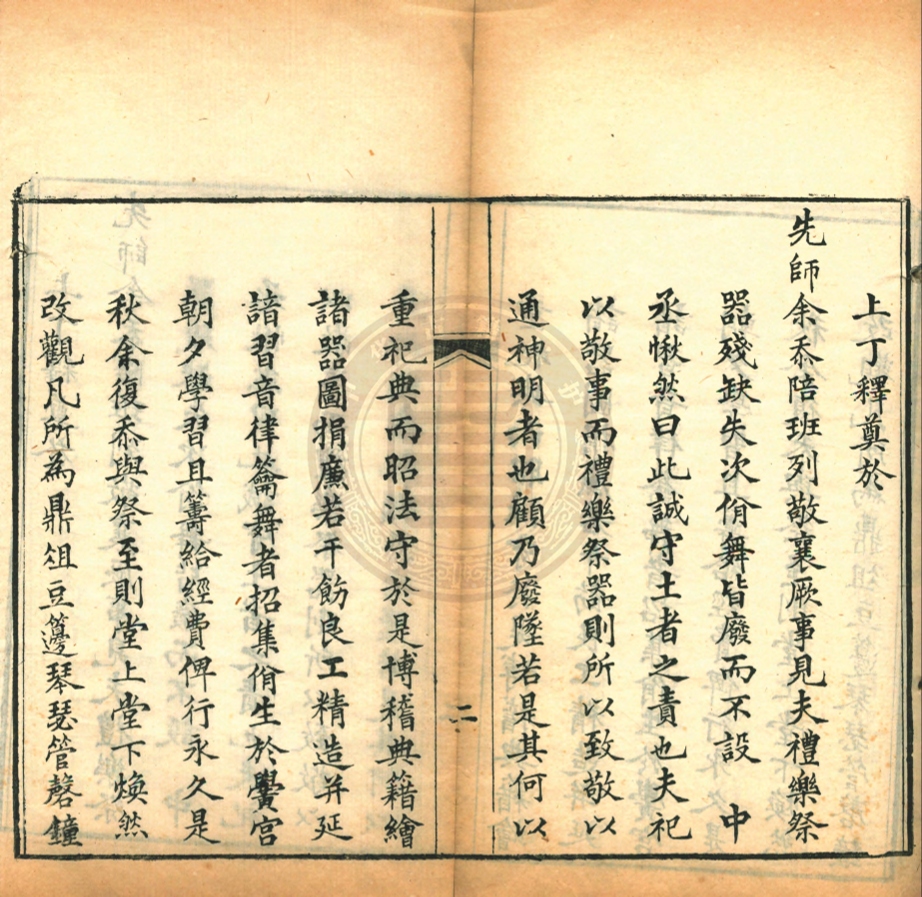 上丁釋奠於
先師余忝陪班列敬襄厥事見夫禮樂祭
器殘缺失次佾舞皆廢而不設　中
丞愀然曰此誠守土者之責也夫祀
以敬事而禮樂祭器則所以致敬以
通神明者也顧乃廢墜若是其何以
二
重祀典而昭法守於是博稽典籍繪
諸器圖捐廉若干飭良工精造并延
諳習音律籥舞者招集佾生於黌宮
朝夕學習且籌給經費俾行永久是
秋余復忝與祭至則堂上堂下煥然
改觀凡所為鼎俎豆籩琴瑟管磬鐘